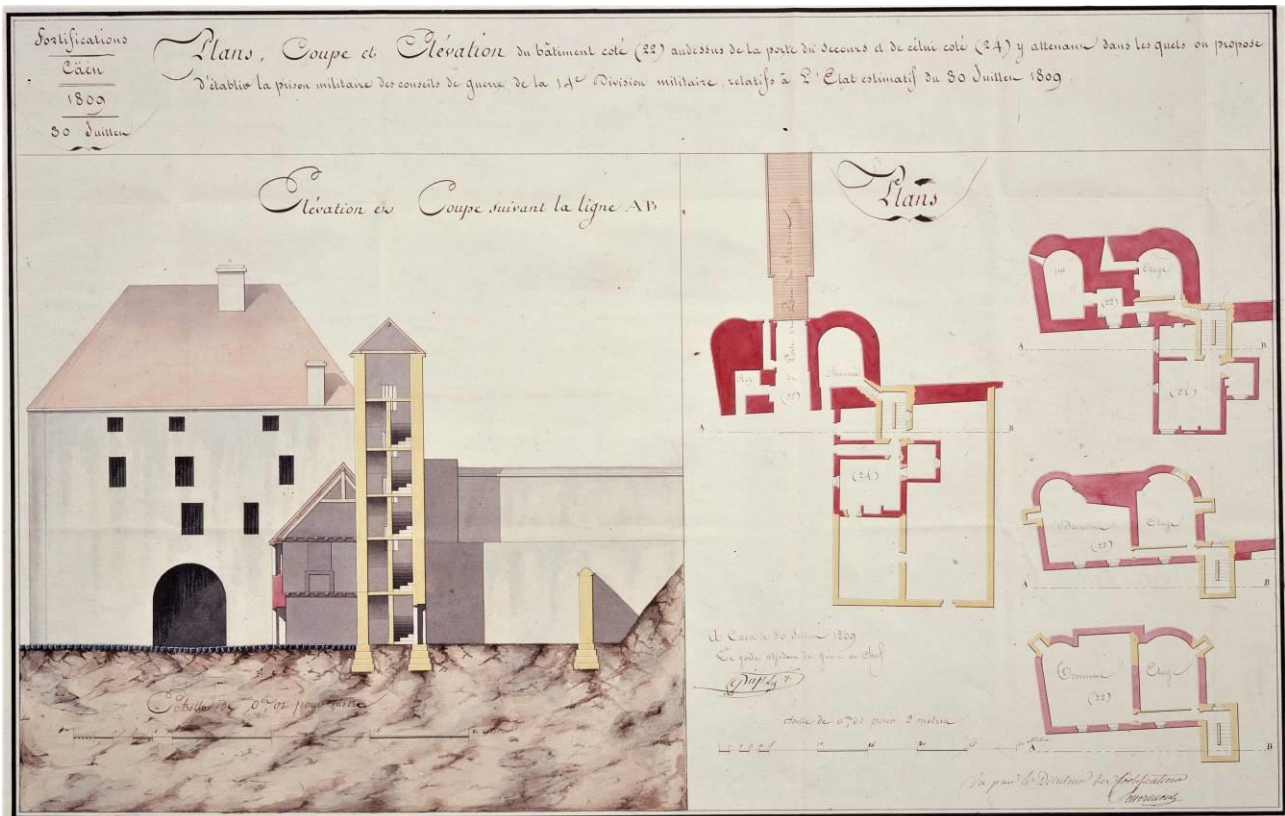 Fortifications
Cäen
1809
30 Juillet
Plans, Coupe et Élévation du bâtiment coté (22) audessus de la porte du secours et de célui coté (24) y attenant dans les quels on propose
d'établir la prison militaire des conseils de guerre de la 14e Division militaire, relatifs à L'Etat estimatif du 30 Juillet 1809.
Élévation et Coupe suivant la ligne AB
Echelle de 0m,01 pour mètre
Plans
Porte
de
(22)
A
B
(24)
1er
Etage
(22)
A
B
(24)
Deuxième
Etage
(22)
A
B
Troisième
Etage
(22)
A
B
A Caën le 30 Juillet 1809
Le garde du génie en chef
échelle de 0m,01 pour 2 mètres
Vu par le Directeur des fortifications